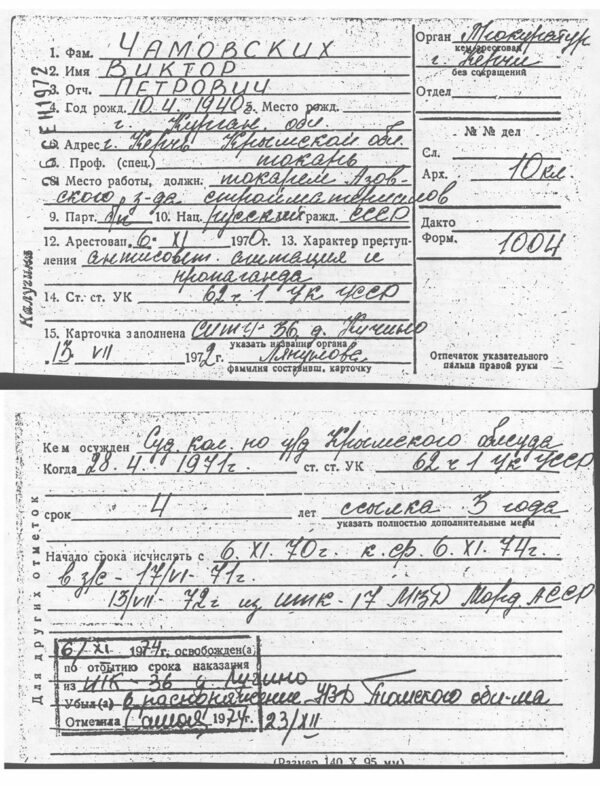 1. Фам. ЧАМОВСКИХ
2. Имя ВИКТОР
3. Отч. ПЕТРОВИЧ
4. Год рожд. 10.4.1940г. Место рожд.
г. Курган, обл.
Адрес г. Керчь Крымской обл.
7. Проф. (спец.) токарь
8. Место работы, должн. токарем Азов-
ского з-да стройматериалов
9. Парт. б/п 10. Нац. русский гражд. СССР
12. Арестован 6. XI 1970г. 13. Характер преступ-
ления антисовет. агитация и
пропаганда
14. Ст. ст. УК 62 ч 1 УК УССР
15. Карточка заполнена 36, д. Кучино
указать название органа
13. VII 1972г.
фамилия составивш. карточку
Орган Прокуратур
кем арестован
г. Керчи
без сокращений
Отдел
№ № дел
Сл.
Арх. 10 кл
Дакто
Форм. 1004
Отпечаток указательного
пальца правой руки
СЕН 1972
Калугина
Кем осужден Суд. кол. по у/д Крымского облсуда
Когда 28.4. 1971г. ст. ст. УК 62 ч 1 УК УССР
срок 4 лет ссылка 3 года
указать полностью дополнительные меры
Начало срока исчислять с 6. XI. 70г. к. ср. 6. XI. 74г.
в з/с - 17/VI - 71г.
13/VII - 72г из ИТК-17 МВД Морд. АССР
Для других отметок
6/XI 1974г. освобожден(а)
по отбытию срока наказания
из ИТК-36 п. Кучино
Убыл(а) в распоряжение УВД Томского обл-ма
Отметила 1974г. 23/XII
(Размер 140 X 95 мм)